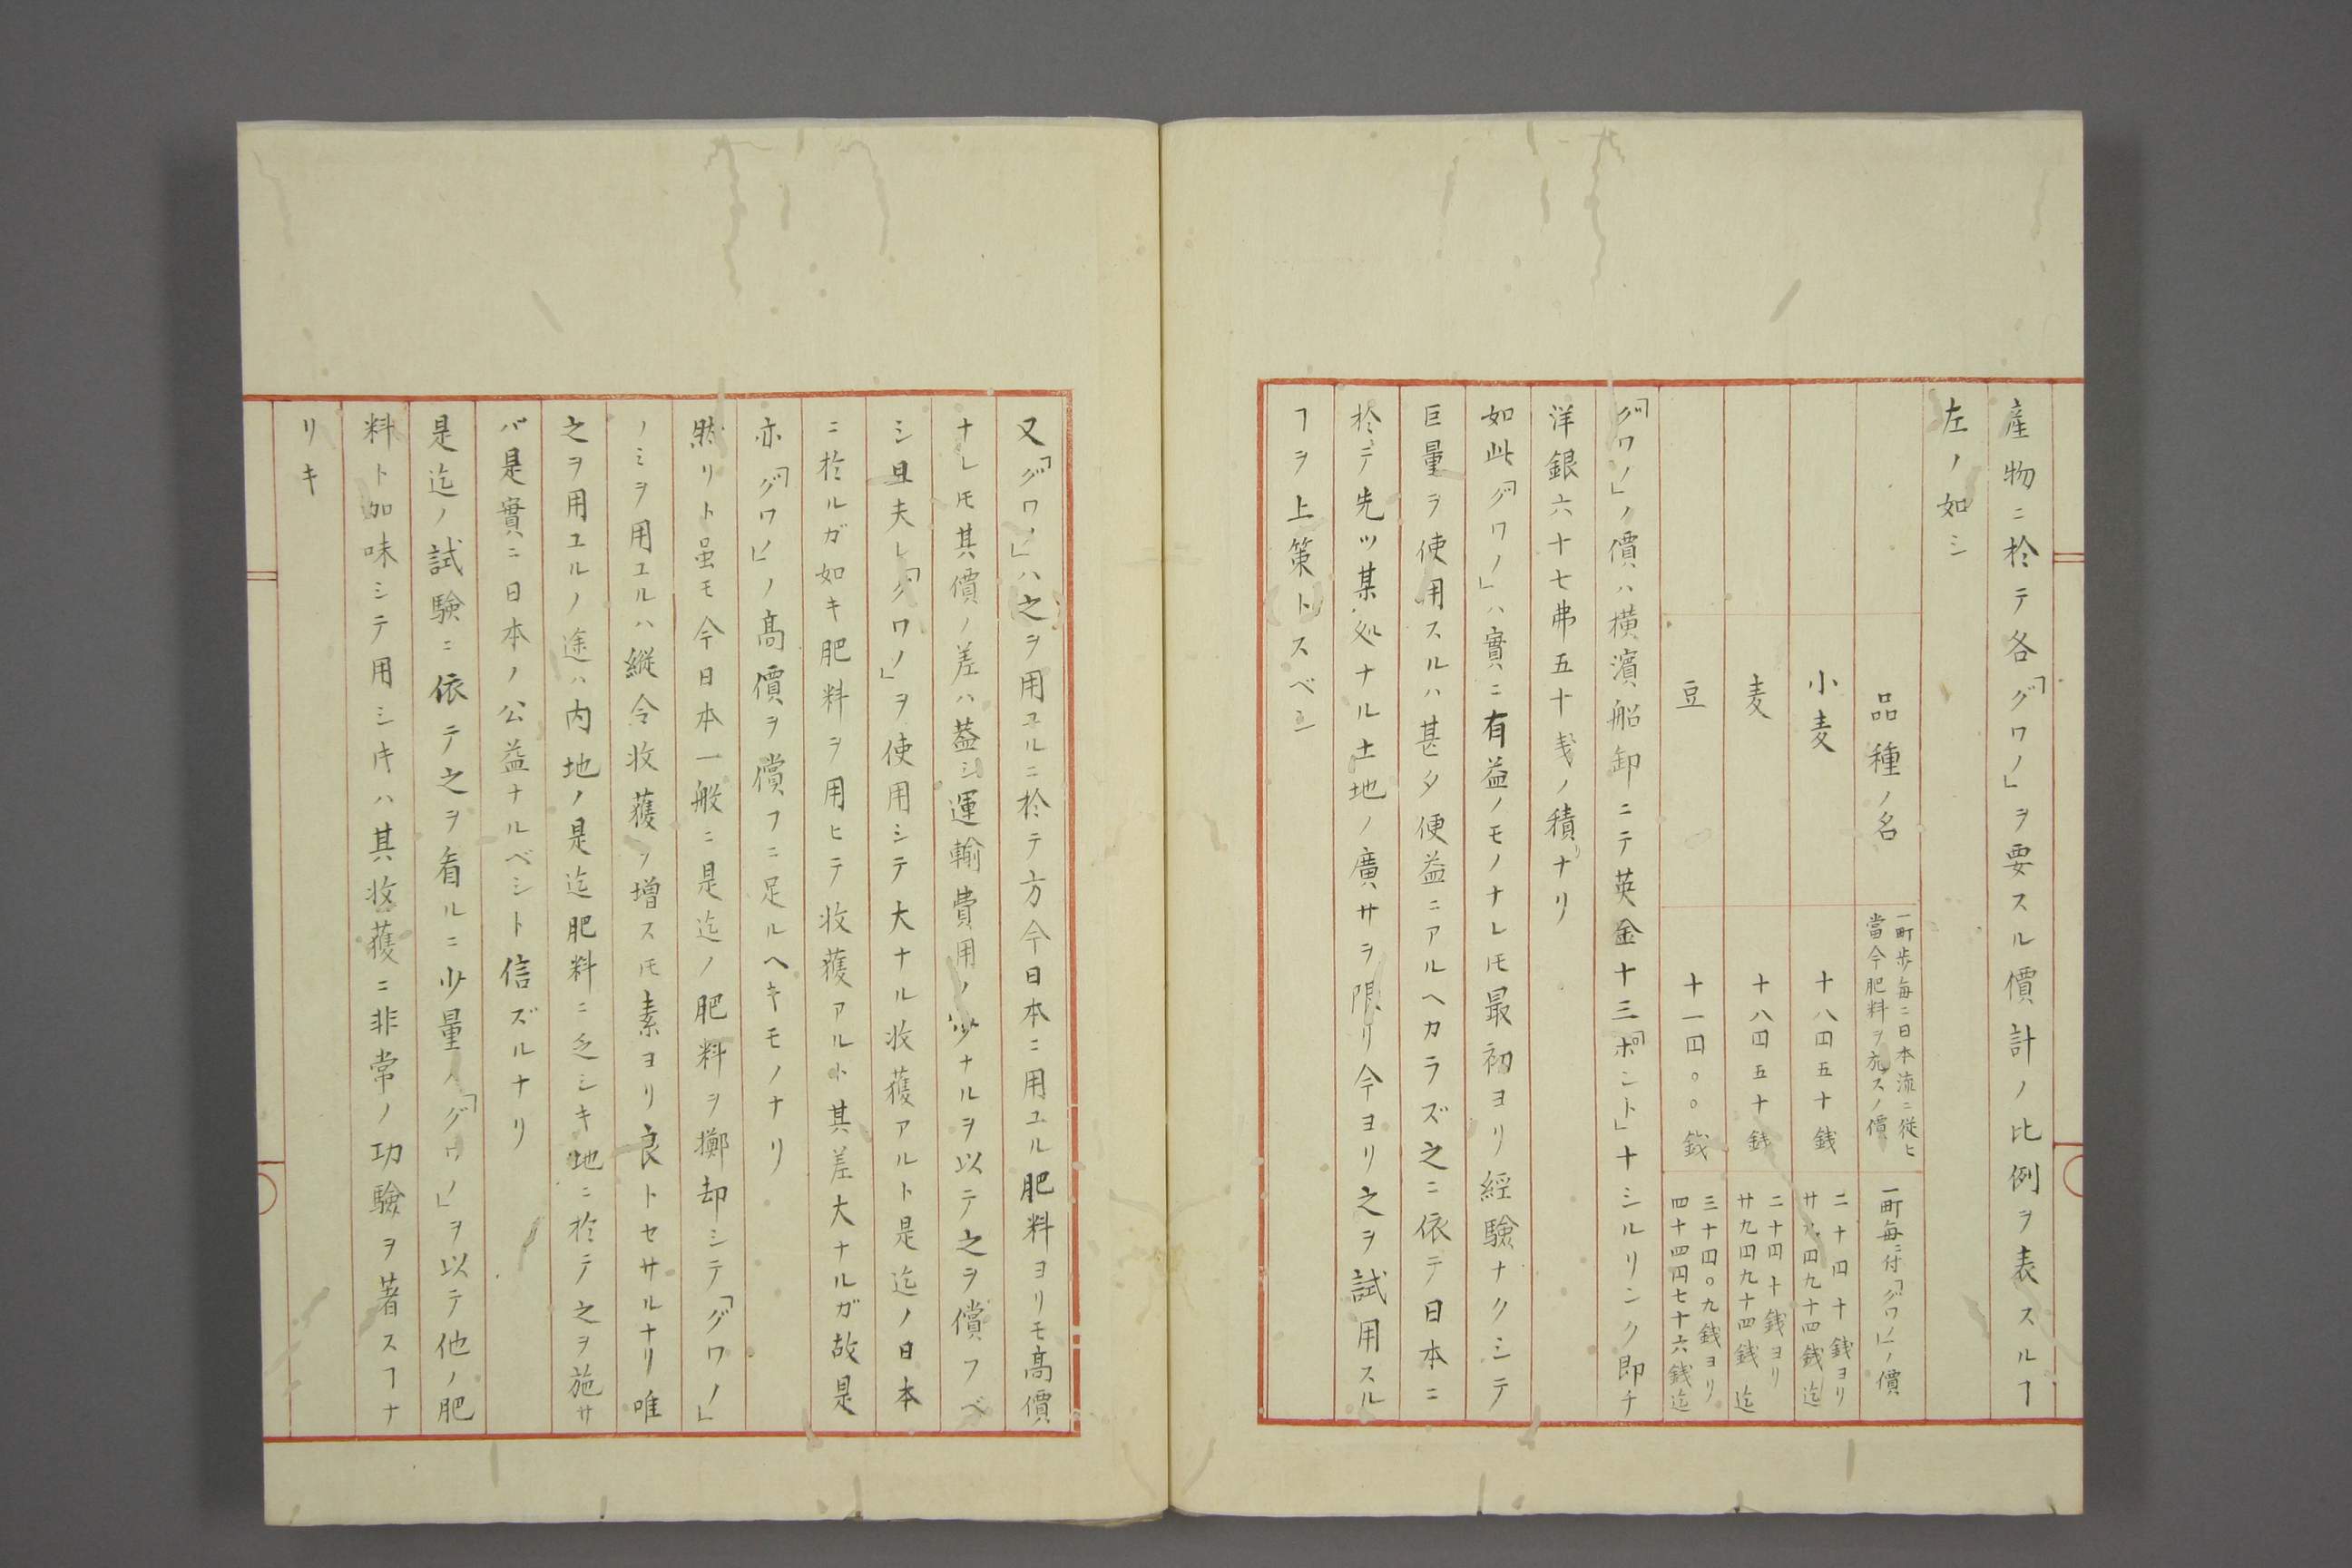 産物ニ於テ各「グワノ」ヲ要スル價計ノ比例ヲ表スルヿ
左ノ如シ
品種ノ名
一町歩毎ニ日本流ニ従ヒ
當今肥料ヲ充スノ價
一町毎ニ付「グワノ」ノ價
小麦
十八円五十銭
二十円十銭ヨリ
廿八円九十四銭迄
麦
十八円五十銭
二十円十銭ヨリ
廿九円九十四銭迄
豆
十一円〇〇銭
三十円〇九銭ヨリ
四十四円七十六銭迄
「グワノ」ノ價ハ横濱船卸ニテ英金十三「ポント」十シルリンク即チ
洋銀六十七弗五十戔ノ積ナリ
如此「グワノ」ハ實ニ有益ノモノナレ𪜈最初ヨリ經驗ナクシテ
巨量ヲ使用スルハ甚タ便益ニアルヘカラズ之ニ依テ日本ニ
於テ先ツ某処ナル土地ノ廣サヲ限リ今ヨリ之ヲ試用スル
ヿヲ上策トスベシ
又「グワノ」ハ之ヲ用ユルニ於テ方今日本ニ用ユル肥料ヨリモ高價
ナレ𪜈其價ノ差ハ蓋シ運輸費用ノ少ナルヲ以テ之ヲ償フベ
シ且夫レ「グワノ」ヲ使用シテ大ナル收獲アルト是迄ノ日本
ニ於ルガ如キ肥料ヲ用ヒテ收獲アルト其差大ナルガ故是
亦「グワノ」ノ高價ヲ償フニ足ルヘキモノナリ
然リト虽モ今日本一般ニ是迄ノ肥料ヲ擲却シテ「グワノ」
ノミヲ用ユルハ縦令收獲ノ増ス𪜈素ヨリ良トセサルナリ唯
之ヲ用ユルノ途ハ内地ノ是迄肥料ニ乏シキ地ニ於テ之ヲ施サ
バ是實ニ日本ノ公益ナルベシト信ズルナリ
是迄ノ試驗ニ依テ之ヲ看ルニ少量ノ「グワノ」ヲ以テ他ノ肥
料ト加味シテ用シ𪜈ハ其收獲ニ非常ノ功驗ヲ著スヿナ
リキ